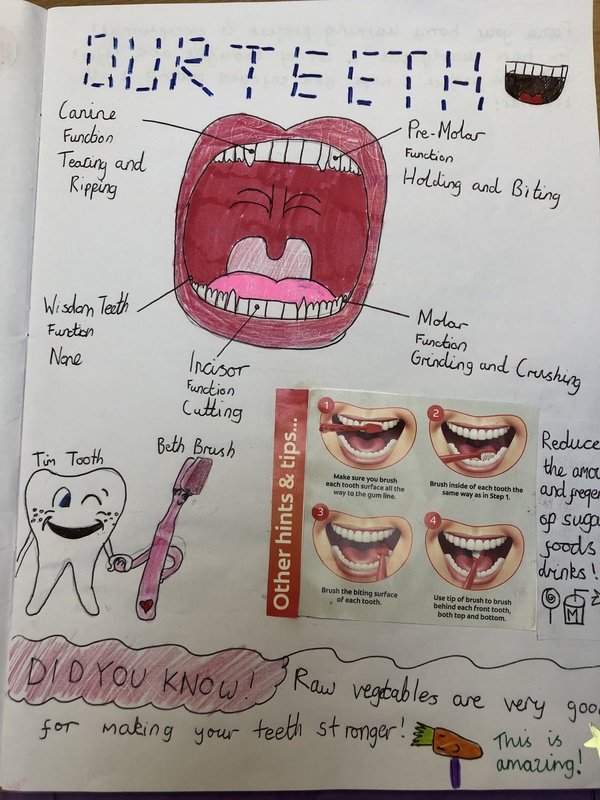 OUR TEETH
Canine
Function
Tearing and
Ripping
Pre-Molar
Function
Holding and Biting
Wisdom Teeth
Function
None
Incisor
Function
Cutting
Molar
Function
Grinding and Crushing
Tim Tooth
Beth Brush
Other hints & tips...
1
Make sure you brush
each tooth surface all the
way to the gum line.
2
Brush inside of each tooth the
same way as in Step 1.
3
Brush the biting surface
of each tooth.
4
Use tip of brush to brush
behind each front tooth,
both top and bottom.
Reduce
the
and
of
foods
drinks!
M
DID YOU KNOW! Raw vegetables are very
for making your teeth stronger!
This is
amazing!